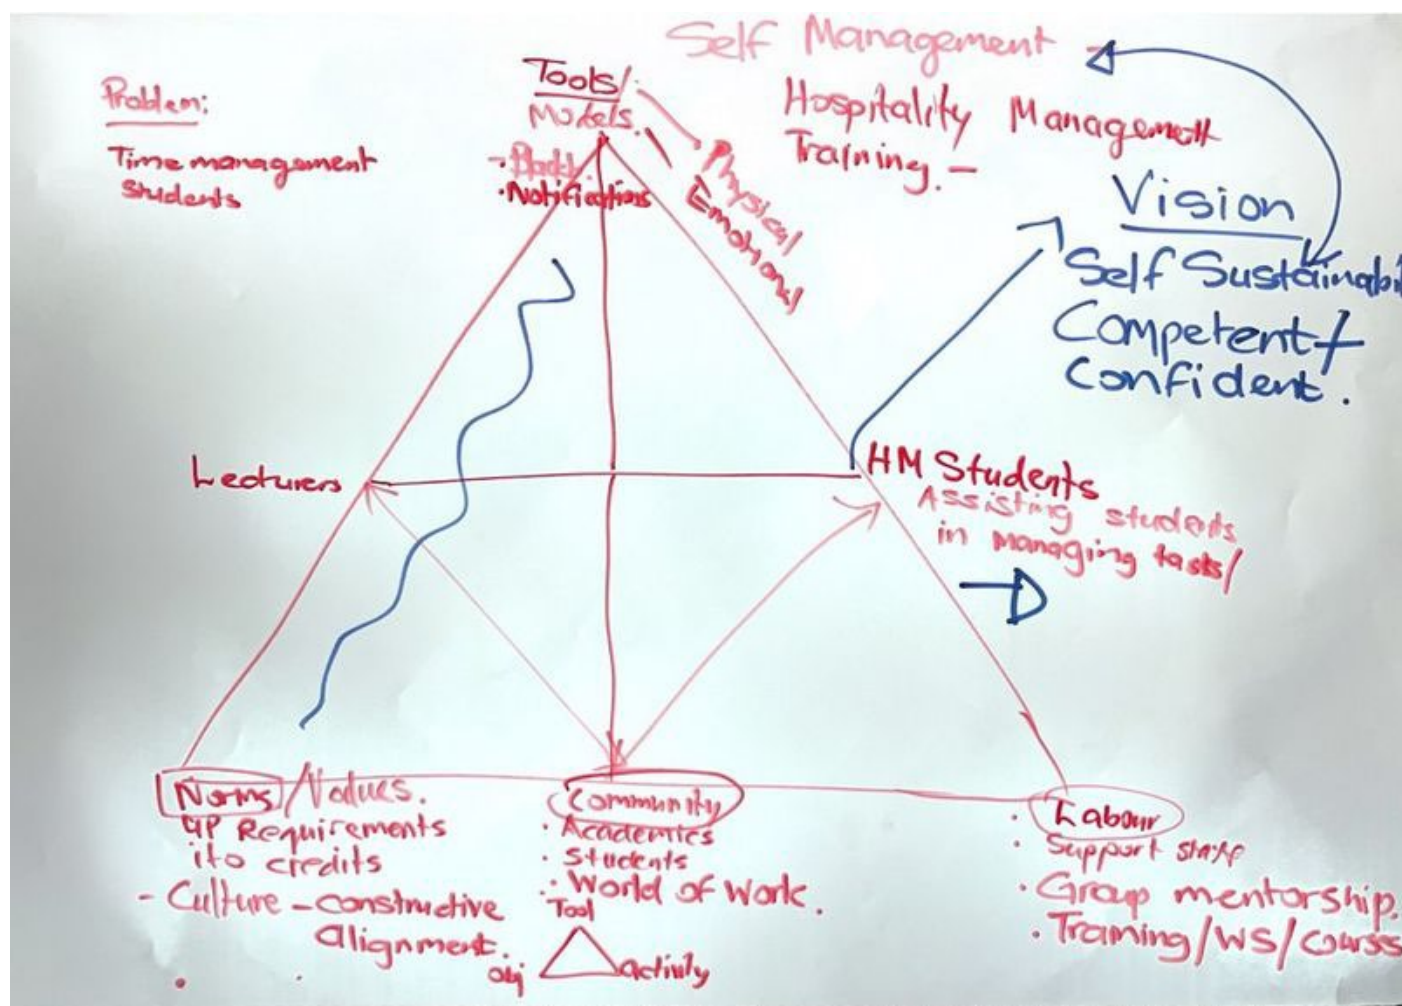 Self Management -
Problem:
Time management
students
Tools/
Models.
-
• Notifications
Physical
Emotional
Hospitality Management
Training. -
Vision
Self Sustainabi
Competent +
Confident.
Lecturers
HM Students
Assisting students
in managing tasks/
Norms/Values.
Requirements
ito credits
- Culture - constructive
alignment.
Community
• Academics
• Students
• World of Work.
Tool
Obj
activity
Labour
• Support staff
• Group mentorship.
• Training/WS/Courses